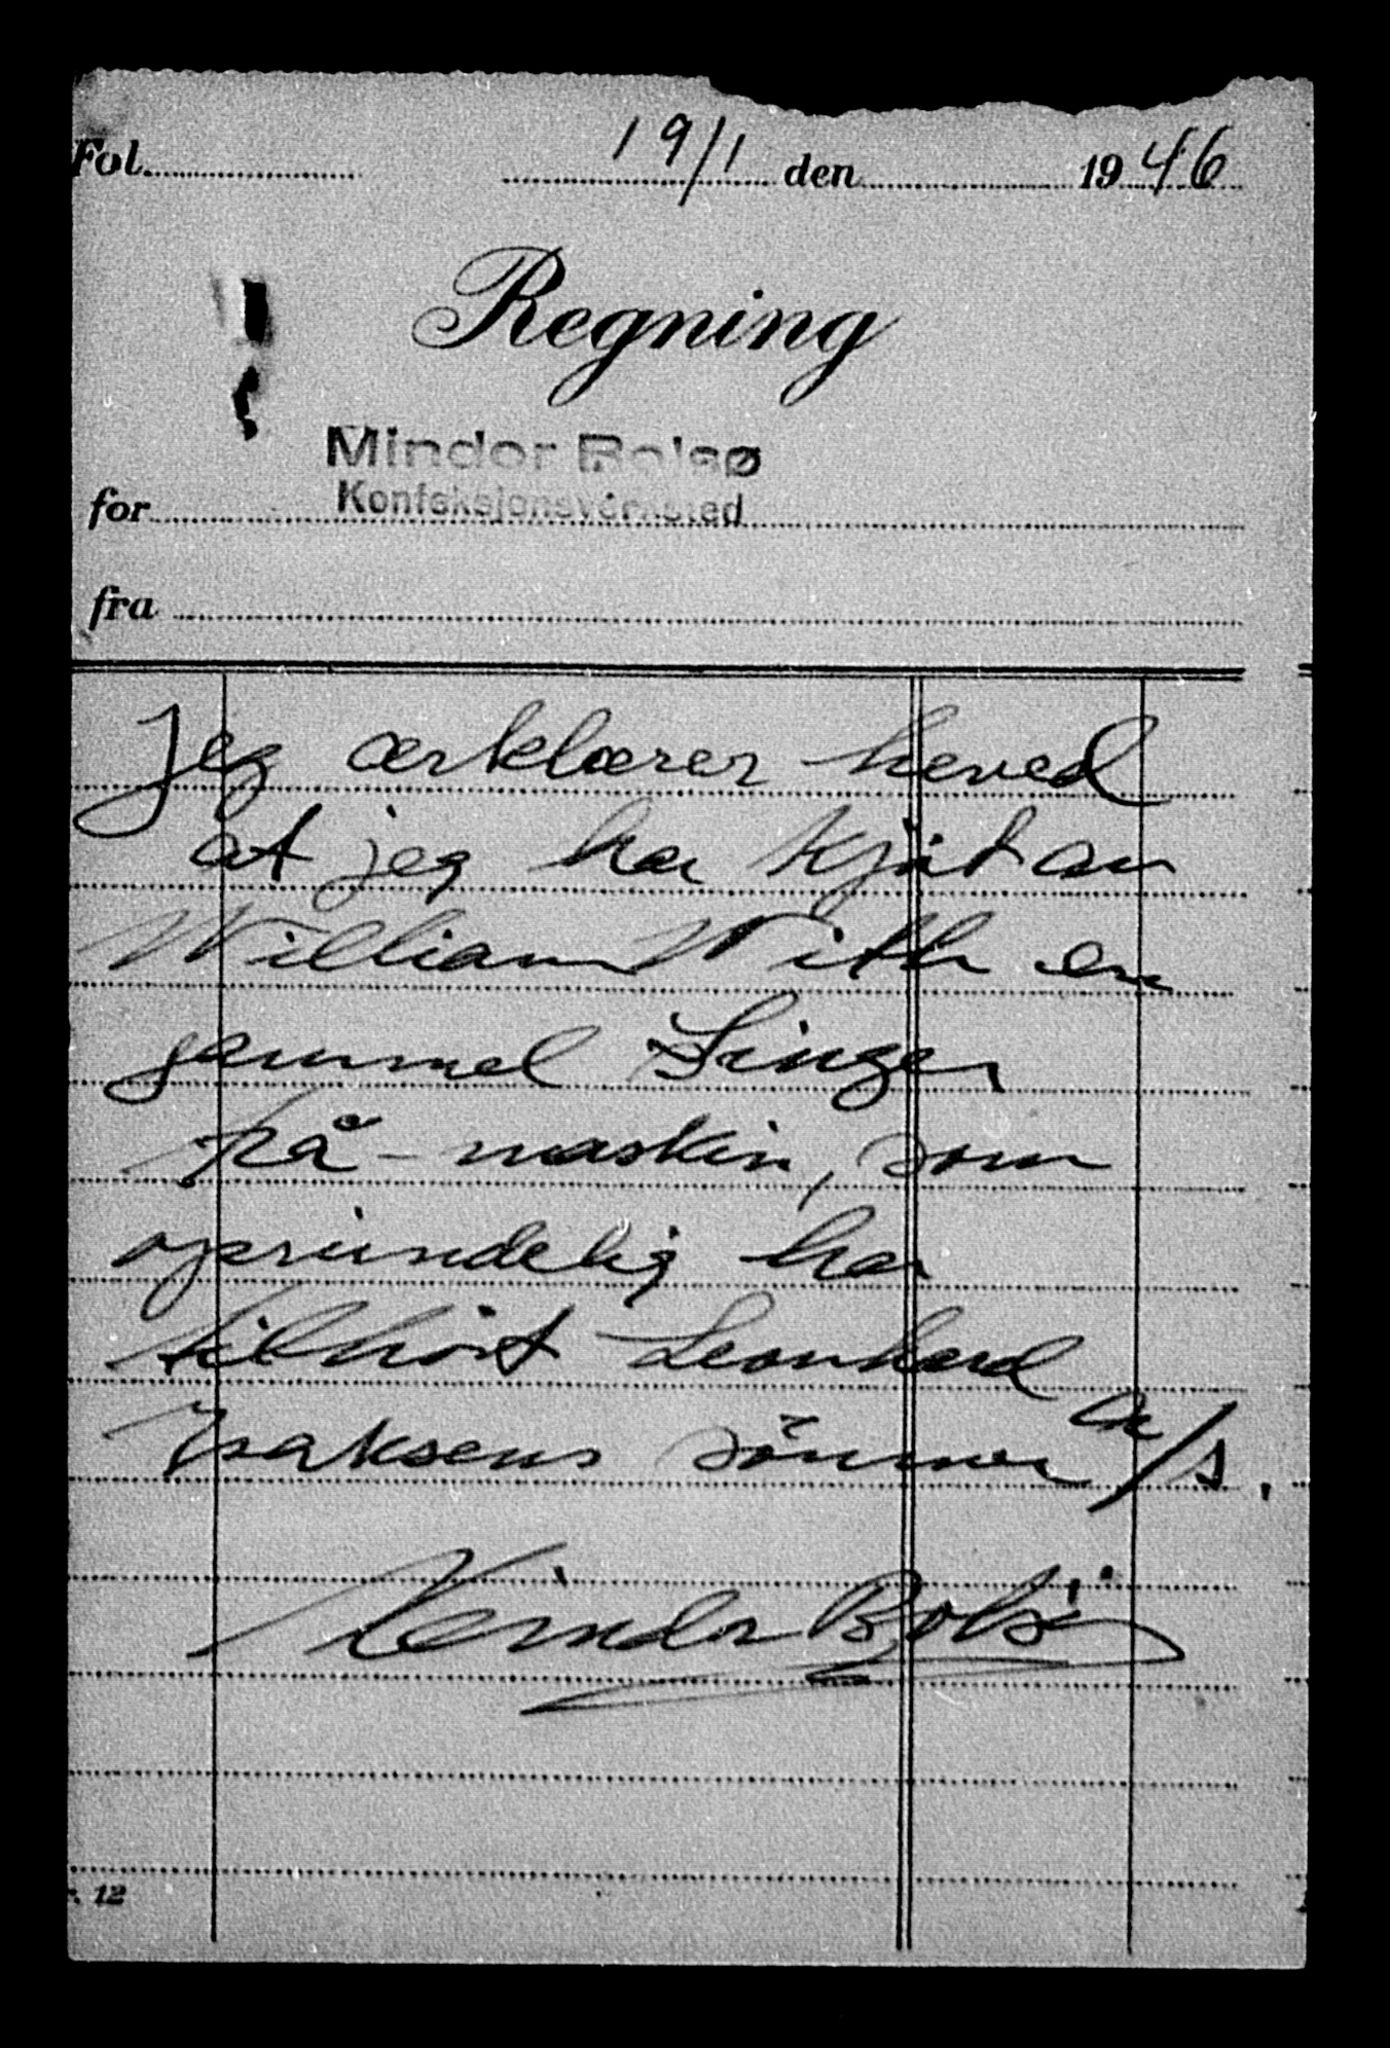 Fol. 19/1 den 1946
Regning
Mindor Bolsø
for Konfeksjonsverksted
fra
Jeg ærklærer heved
at jeg har kjöt av
William With en
gammel Singer
hå-maskin, som
oprindelig har
tilhört Leonhard
Isaksens sönner A/S.
Mindor Bolsö
. 12